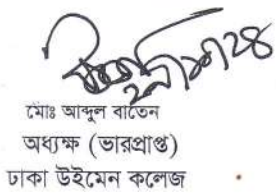 মোঃ আব্দুল বাতেন
অধ্যক্ষ (ভারপ্রাপ্ত)
ঢাকা উইমেন কলেজ